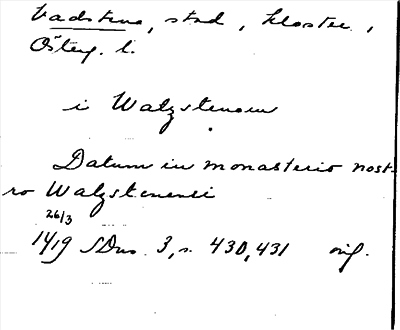 Vadstena, stad, kloster,
Österg. l.
i Watzstenom
Datum in monasterio nost-
ro Watzstenensi
26/3
1419 SDns 3, s. 430, 431 orig.